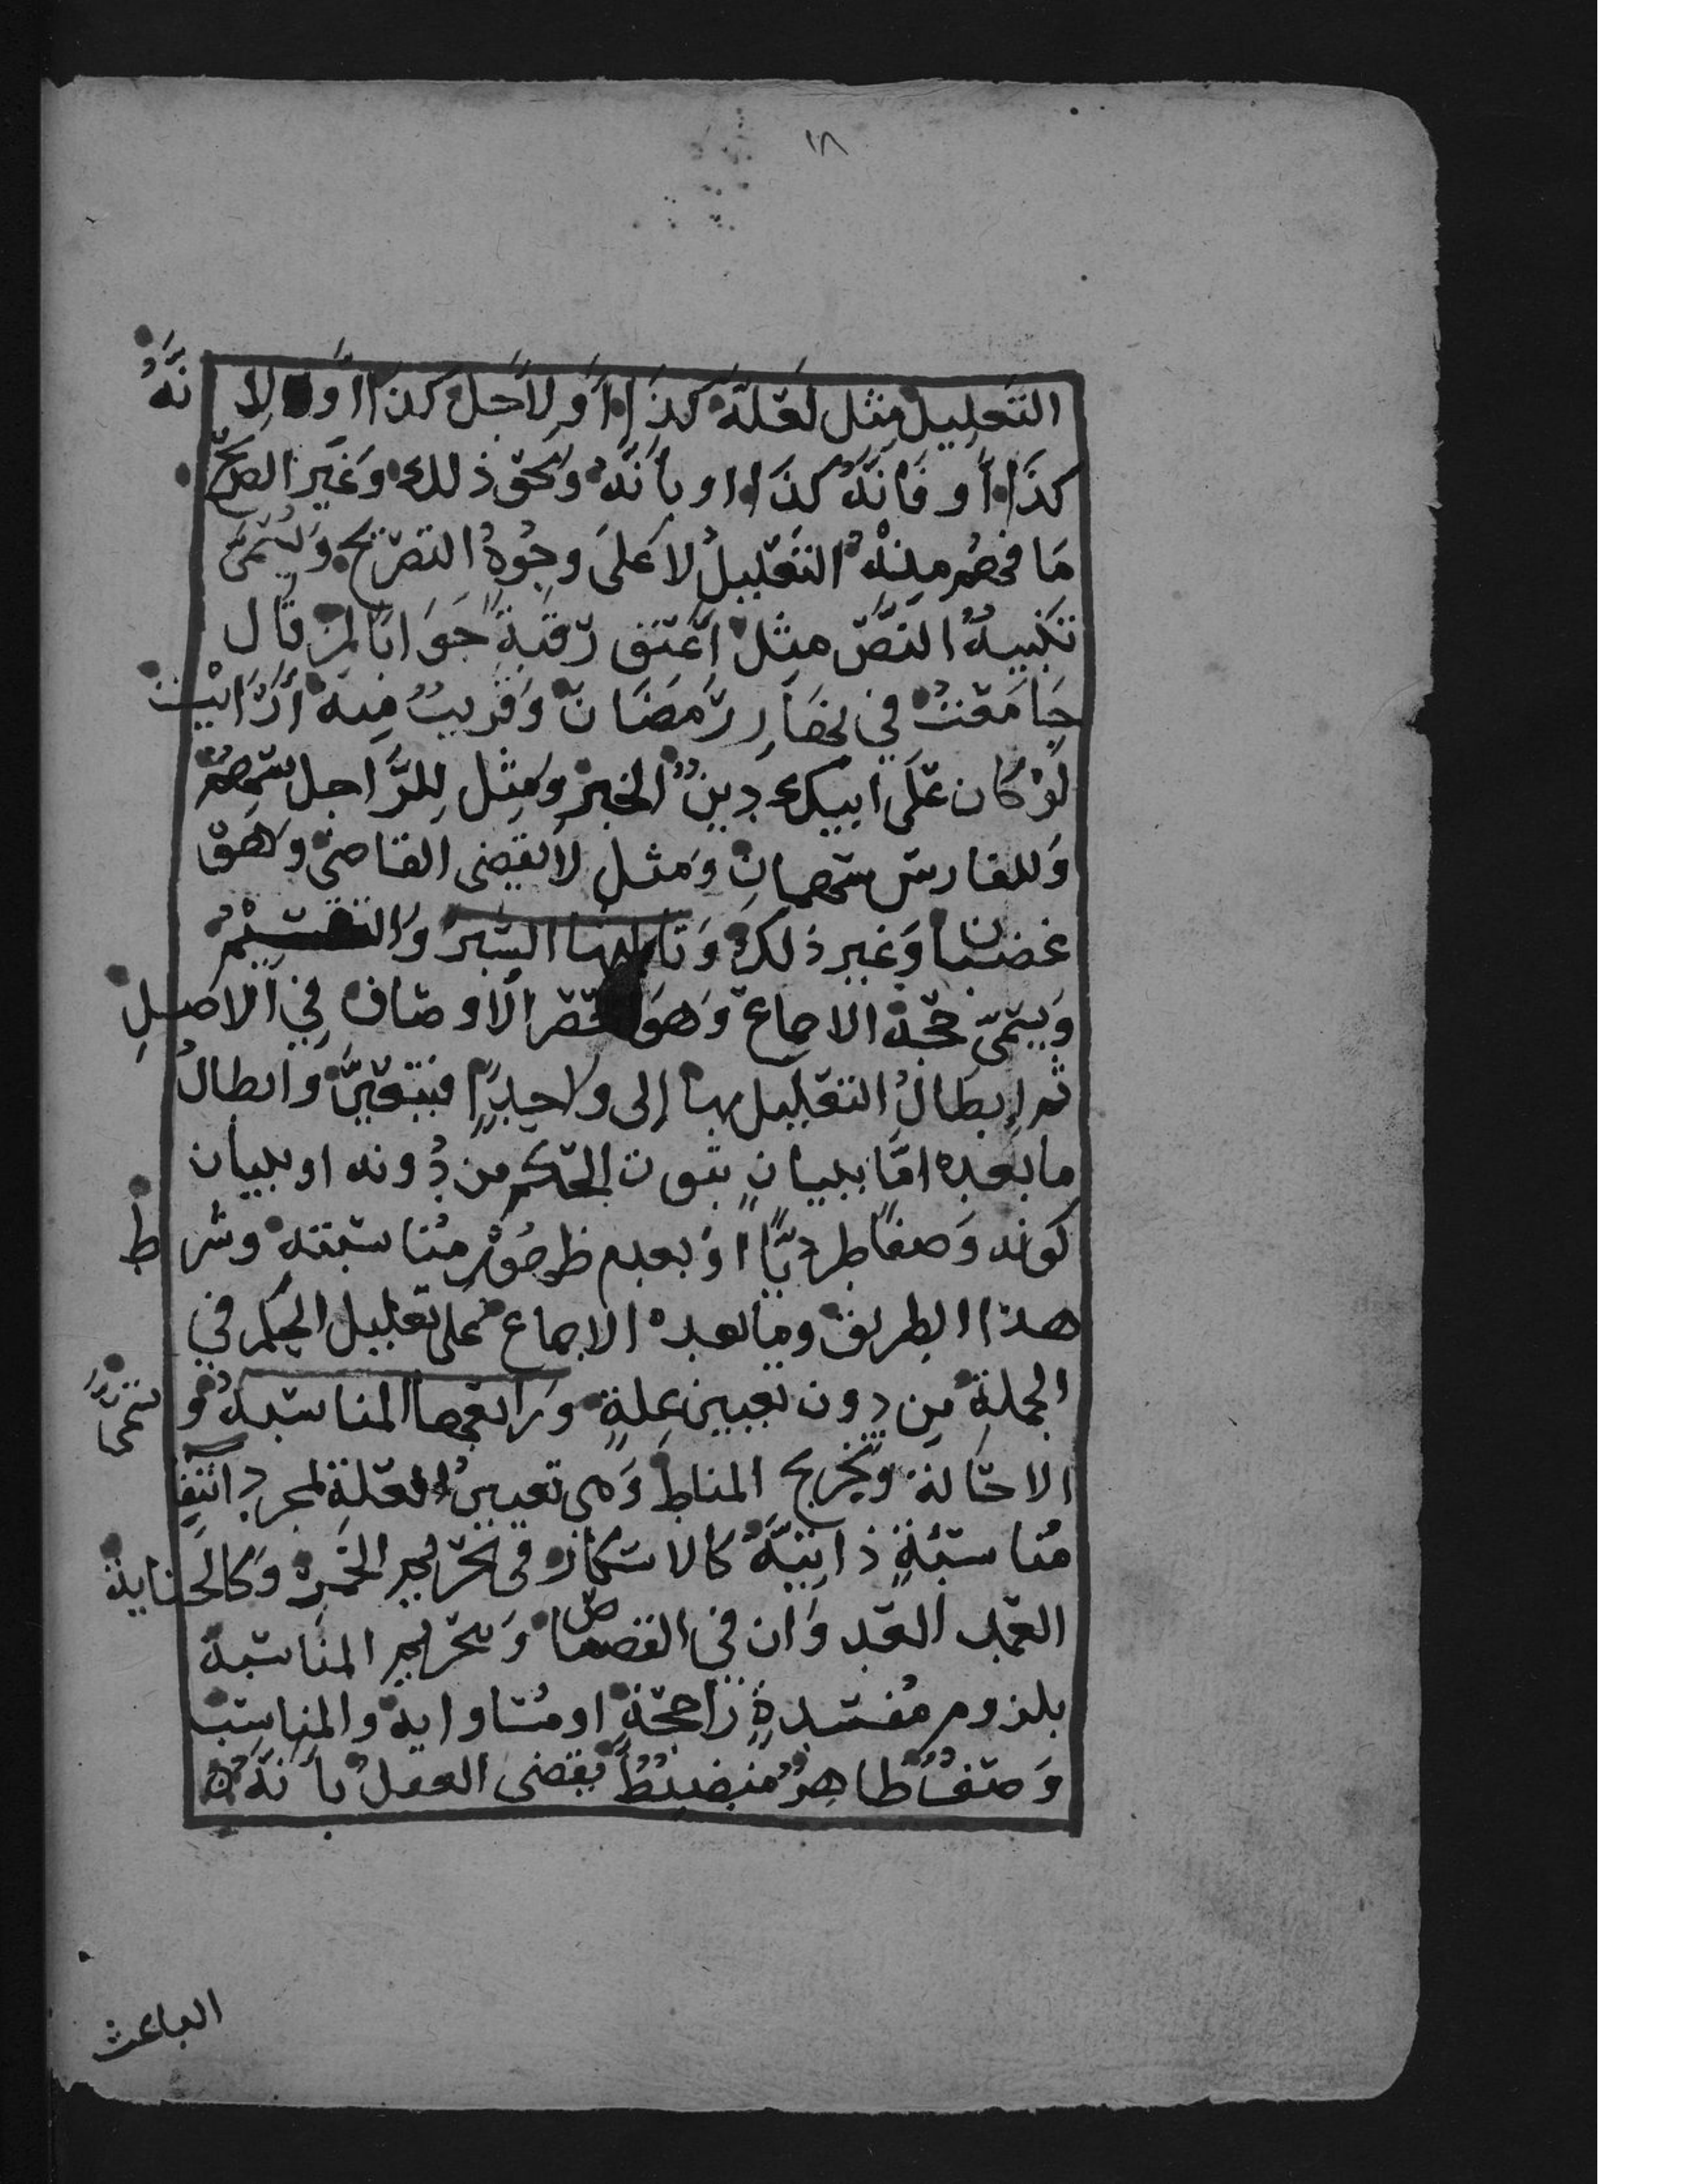 ١٨
التعليل مثل لعلة كذا أو لأجل كذا أو لانه
كذا أو فانه كذا او بأنه ونحو ذلك وغير الصريح
ما فهم منه التعليل لا على وجه التصريح ويسمى
تنبيه النص مثل اعتق رقبة جوابا لمن قال
جامعت في نهار رمضان وقريب منه أرايت
لو كان على ابيك دين الخبر ومثل للراجل سهم
وللفارس سهمان ومثل لا يقضي القاضي وهو
غضبان وغير ذلك وثالثها السبر والتقسيم
ويسمى حجة الاجماع وهو حصر الاوصاف في الاصل
ثم إبطال التعليل بها إلى واحد فيتعين وابطال
ما بعده اما ببيان ثبوت الحكم من دونه او ببيان
كونه وصفا طرديا او بعدم ظهور مناسبته وشرط
هذا الطريق وما بعده الاجماع على تعليل الحكم في
الجملة من دون تعيين علة ورابعها المناسبة وتسمى
الاخالة وتخريج المناط وهي تعيين العلة لمجرد
مناسبة ذاتية كالاسكار في تحريم الخمر وكالجناية
العمد العدوان في القصاص وتحريم المناسبة
بلزوم مفسدة راجحة او مساواية والمناسب
وصف ظاهر منضبط يقضي العقل بأنه
الباعث